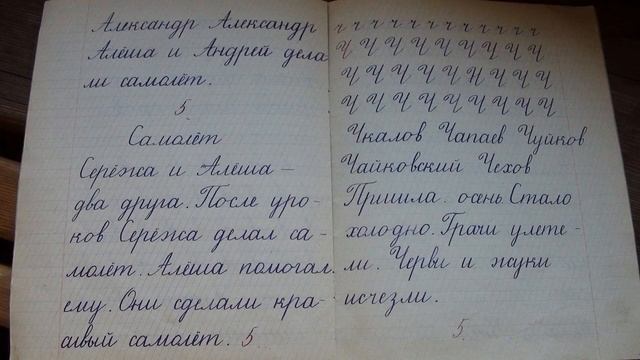 Александр Александр
Алёша и Андрей дела
ли самолёт.
5
Самолёт
Серёжа и Алёша —
два друга. После уро-
ков Серёжа делал са-
молёт. Алёша помогал
ему. Они сделали кра-
сивый самолёт. 5
ч ч ч ч ч ч ч ч ч ч ч ч
Ч Ч Ч Ч Ч Ч Ч Ч Ч
Ч Ч Ч Ч Ч Ч Ч Ч Ч
Ч Ч Ч Ч Ч Ч Ч Ч Ч
Чкалов Чапаев Чуйков
Чайковский Чехов
Пришла осень. Стало
холодно. Грачи улете-
ли. Черви и жуки
исчезли.
5